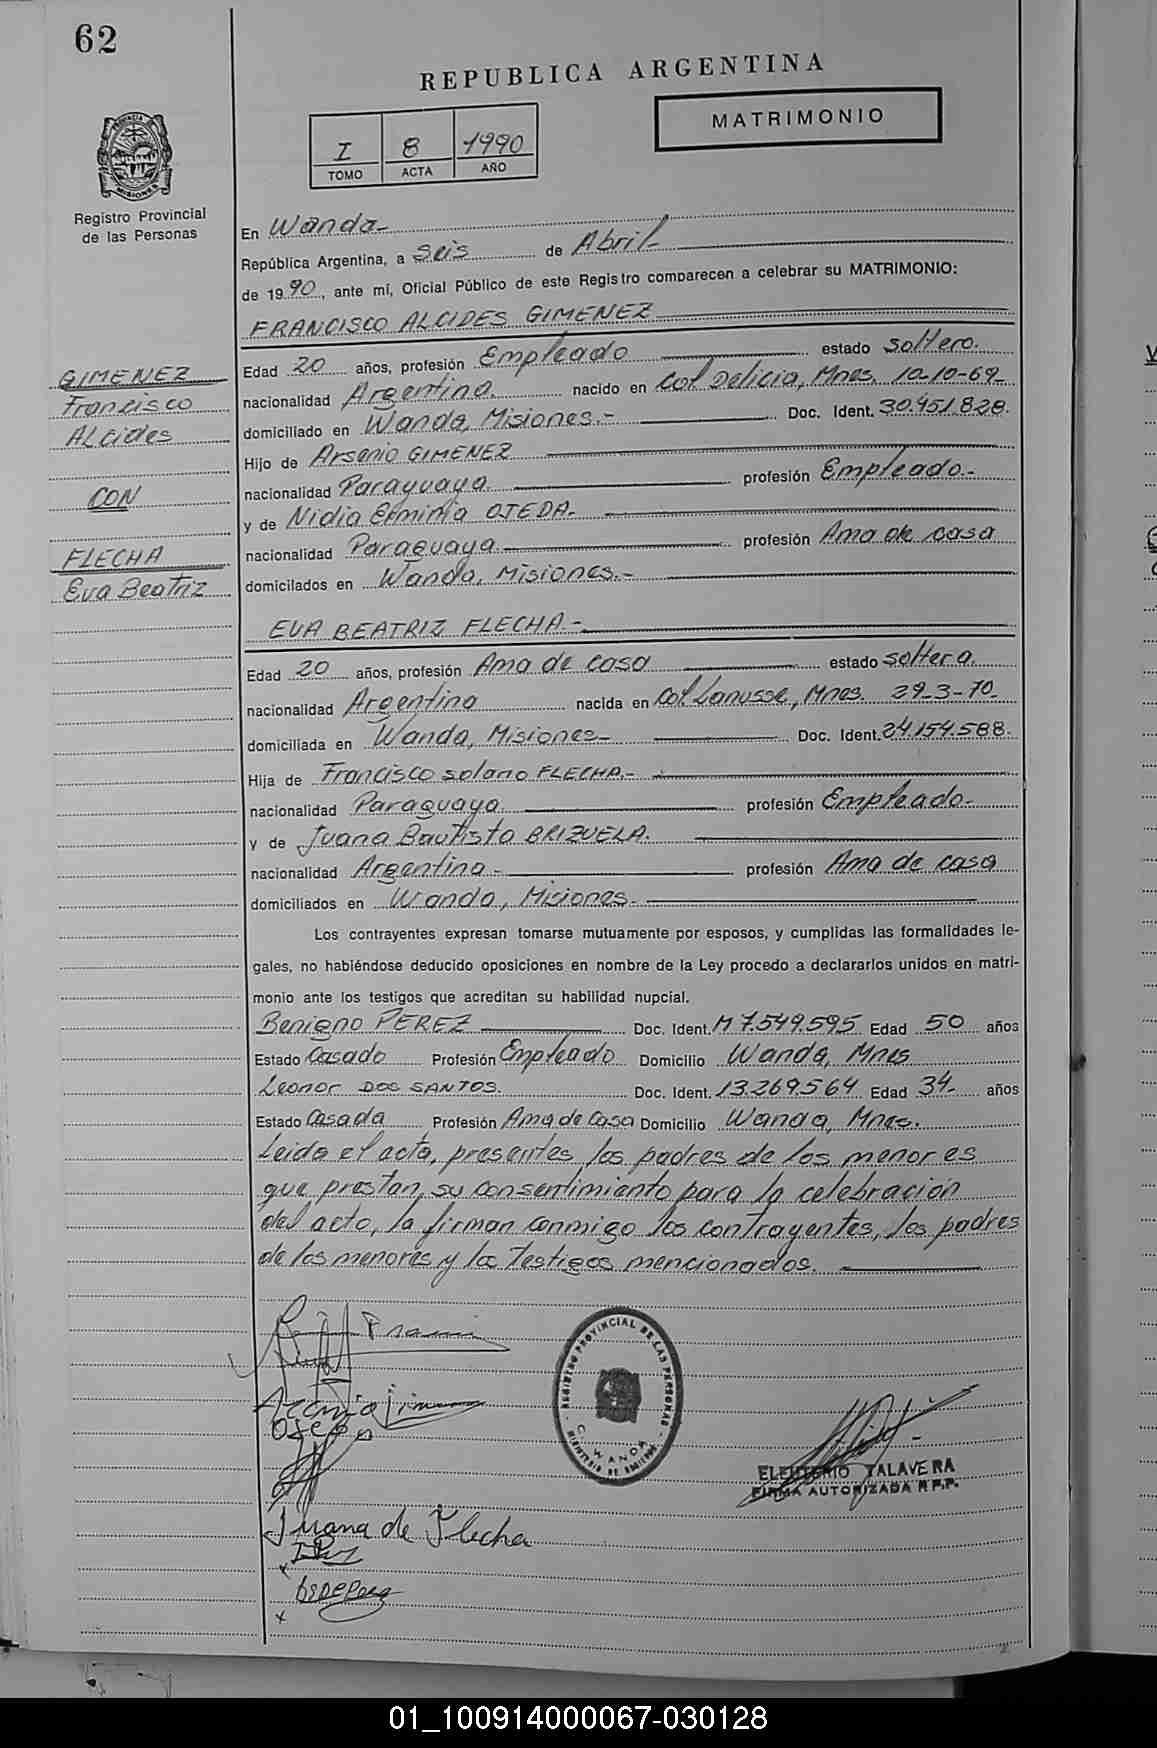 62
REPUBLICA ARGENTINA
MATRIMONIO
I 8 1990
TOMO ACTA AÑO
PROVINCIA DE MISIONES
Registro Provincial
de las Personas
En Wanda-
República Argentina, a seis de Abril-
de 1990, ante mí, Oficial Público de este Registro comparecen a celebrar su MATRIMONIO:
FRANCISCO ALCIDES GIMENEZ
GIMENEZ
Francisco
ALcides
CON
FLECHA
Eva Beatriz
Edad 20 años, profesión Empleado estado soltero.
nacionalidad Argentina. nacido en Col Delicia, Mnes. 10-10-69-
domiciliado en Wanda, Misiones.- Doc. Ident. 30.451.828.
Hijo de Arsenio GIMENEZ
nacionalidad Paraguaya. profesión Empleado.-
y de Nidia Erminia OJEDA.
nacionalidad Paraguaya. profesión Ama de casa
domicilados en Wanda, Misiones.-
EVA BEATRIZ FLECHA.-
Edad 20 años, profesión Ama de casa estado soltera.
nacionalidad Argentina nacida en Col. Lanusse, Mnes. 29-3-70-
domiciliada en Wanda, Misiones- Doc. Ident. 24.154.588.
Hija de Francisco solano FLECHA.-
nacionalidad Paraguaya. profesión Empleado.
y de Juana Bautista BRIZUELA.
nacionalidad Argentina.- profesión Ama de casa
domiciliados en Wanda, Misiones.
Los contrayentes expresan tomarse mutuamente por esposos, y cumplidas las formalidades le-
gales, no habiéndose deducido oposiciones en nombre de la Ley procedo a declararlos unidos en matri-
monio ante los testigos que acreditan su habilidad nupcial.
Benigno PEREZ Doc. Ident. M 7.549.595 Edad 50 años
Estado Casado Profesión Empleado Domicilio Wanda, Mnes
Leonor DOS SANTOS. Doc. Ident. 13.269.564 Edad 34- años
Estado Casada Profesión Ama de Casa Domicilio Wanda, Mnes.
Leida el acta, presentes los padres de los menores
que prestan su consentimiento para la celebración
del acto, la firman conmigo los contrayentes, los padres
de los menores y los testigos mencionados.
REGISTRO PROVINCIAL DE LAS PERSONAS
WANDA
ELEUTERIO TALAVERA
FIRMA AUTORIZADA R.P.P.
Juana de Flecha
01_100914000067-030128